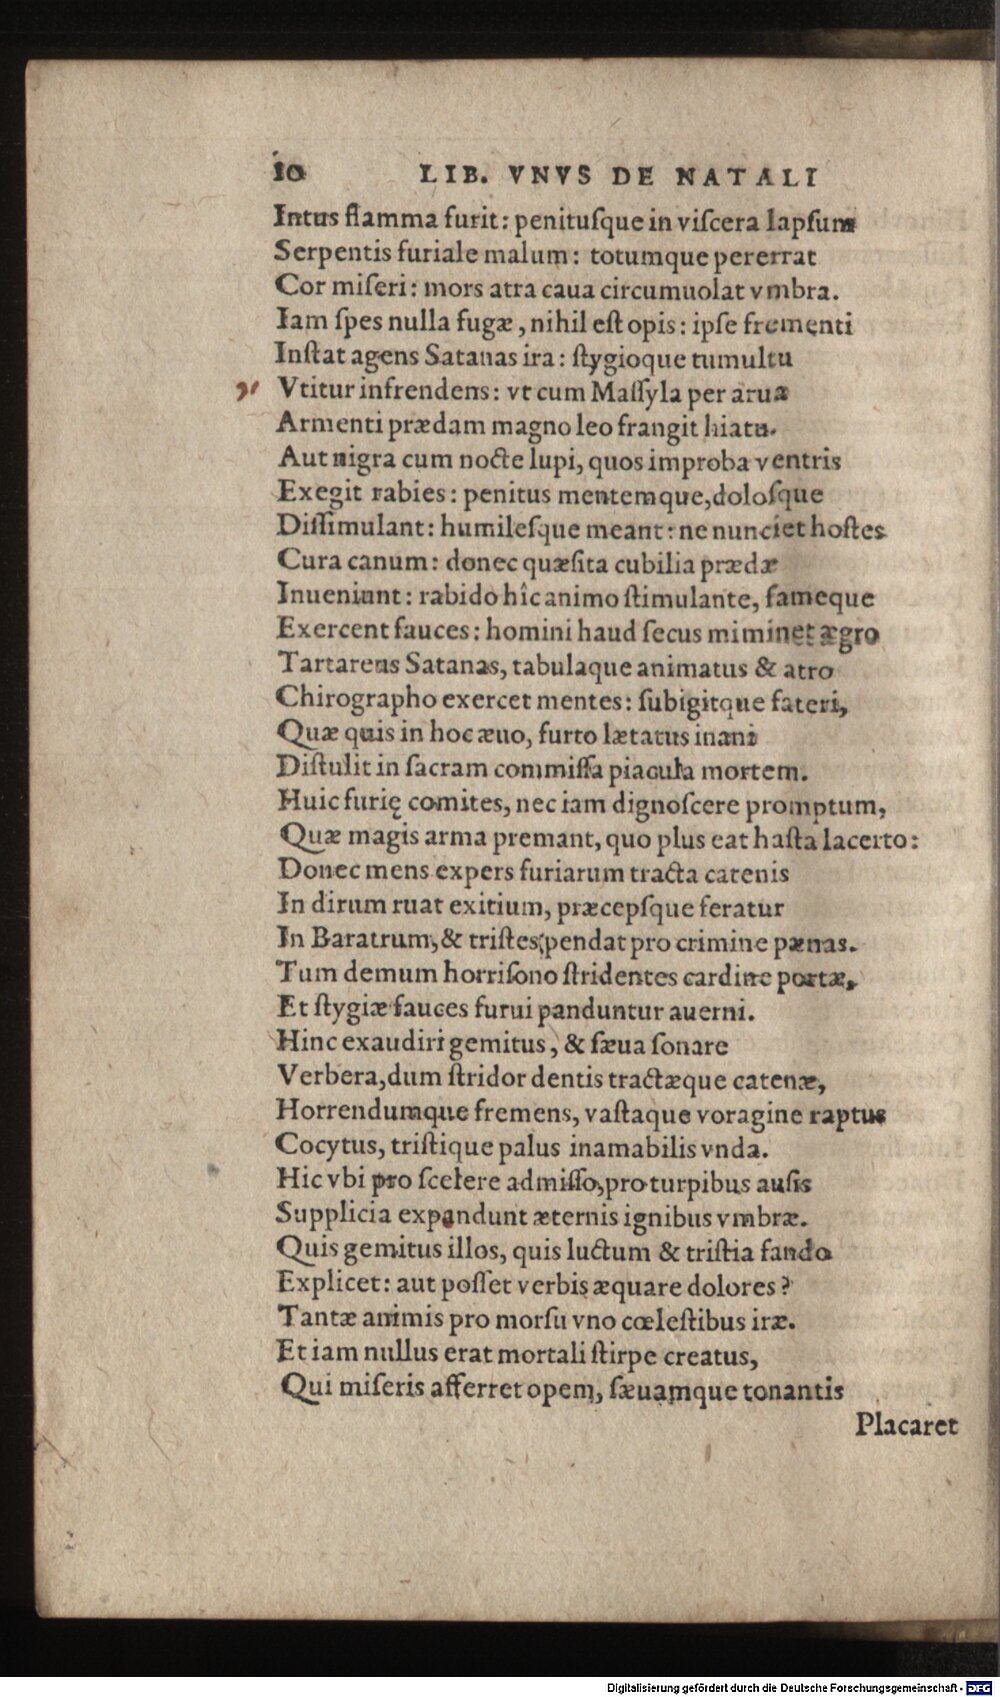 10 LIB. VNVS DE NATALI
Intus flamma furit: penituſque in viſcera lapſum
Serpentis furiale malum: totumque pererrat
Cor miſeri: mors atra caua circumuolat vmbra.
Iam ſpes nulla fugæ, nihil eſt opis: ipſe frementi
Inſtat agens Satanas ira: ſtygioque tumultu
Vtitur infrendens: vt cum Maſſyla per arua
Armenti prædam magno leo frangit hiatu.
Aut nigra cum nocte lupi, quos improba ventris
Exegit rabies: penitus mentemque, doloſque
Diſſimulant: humileſque meant: ne nunciet hoſtes
Cura canum: donec quæſita cubilia prædæ
Inueniunt: rabido hîc animo ſtimulante, fameque
Exercent fauces: homini haud ſecus miminet ægro
Tartareus Satanas, tabulaque animatus & atro
Chirographo exercet mentes: ſubigitque fateri,
Quæ quis in hoc æuo, furto lætatus inani
Diſtulit in ſacram commiſſa piacula mortem.
Huic furię comites, nec iam dignoſcere promptum,
Quæ magis arma premant, quo plus eat haſta lacerto:
Donec mens expers furiarum tracta catenis
In dirum ruat exitium, præcepſque feratur
In Baratrum, & triſtes pendat pro crimine pænas.
Tum demum horriſono ſtridentes cardine portæ,
Et ſtygiæ fauces furui panduntur auerni.
Hinc exaudiri gemitus, & ſæua ſonare
Verbera, dum ſtridor dentis tractæque catenæ,
Horrendumque fremens, vaſtaque voragine raptus
Cocytus, triſtique palus inamabilis vnda.
Hic vbi pro ſcelere admiſſo, pro turpibus auſis
Supplicia expandunt æternis ignibus vmbræ.
Quis gemitus illos, quis luctum & triſtia fando
Explicet: aut poſſet verbis æquare dolores?
Tantæ animis pro morſu vno cœleſtibus iræ.
Et iam nullus erat mortali ſtirpe creatus,
Qui miſeris afferret opem, ſæuamque tonantis
Placaret
Digitalisierung gefördert durch die Deutsche Forschungsgemeinschaft - DFG